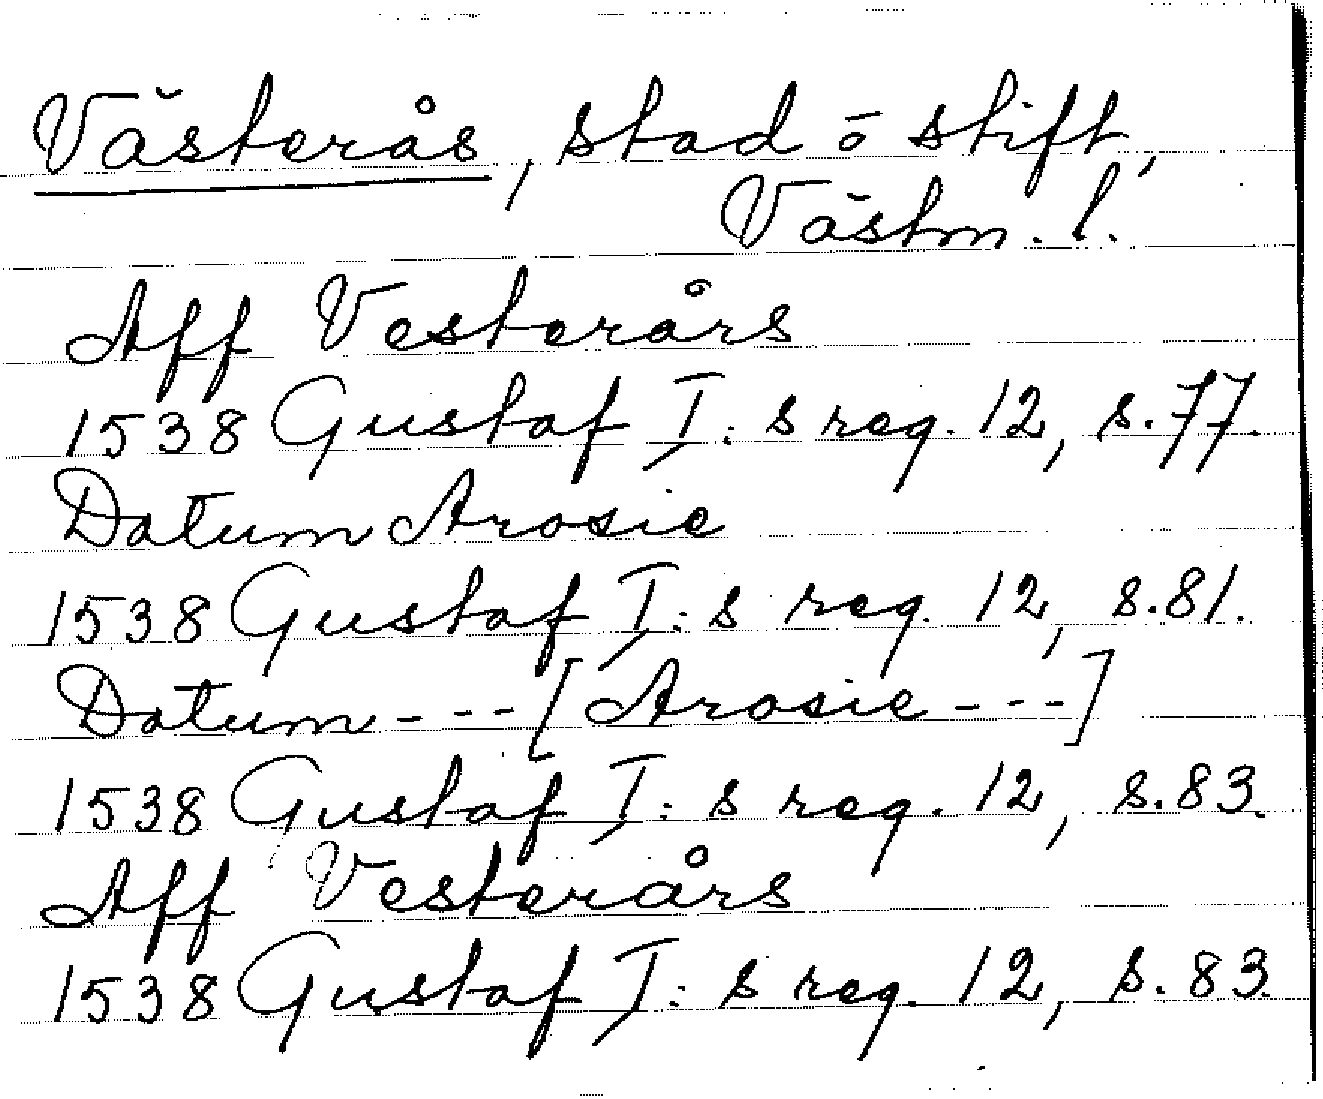 Västerås, stad o stift,
Västm. l.
Aff Vesterårs
1538 Gustaf I: s reg. 12, s. 77.
Datum Arosie
1538 Gustaf I: s reg. 12, s. 81.
Datum - - - - [Arosie - - - -]
1538 Gustaf I: s reg. 12, s. 83.
Aff Vesterårs
1538 Gustaf I: s reg. 12, s. 83.